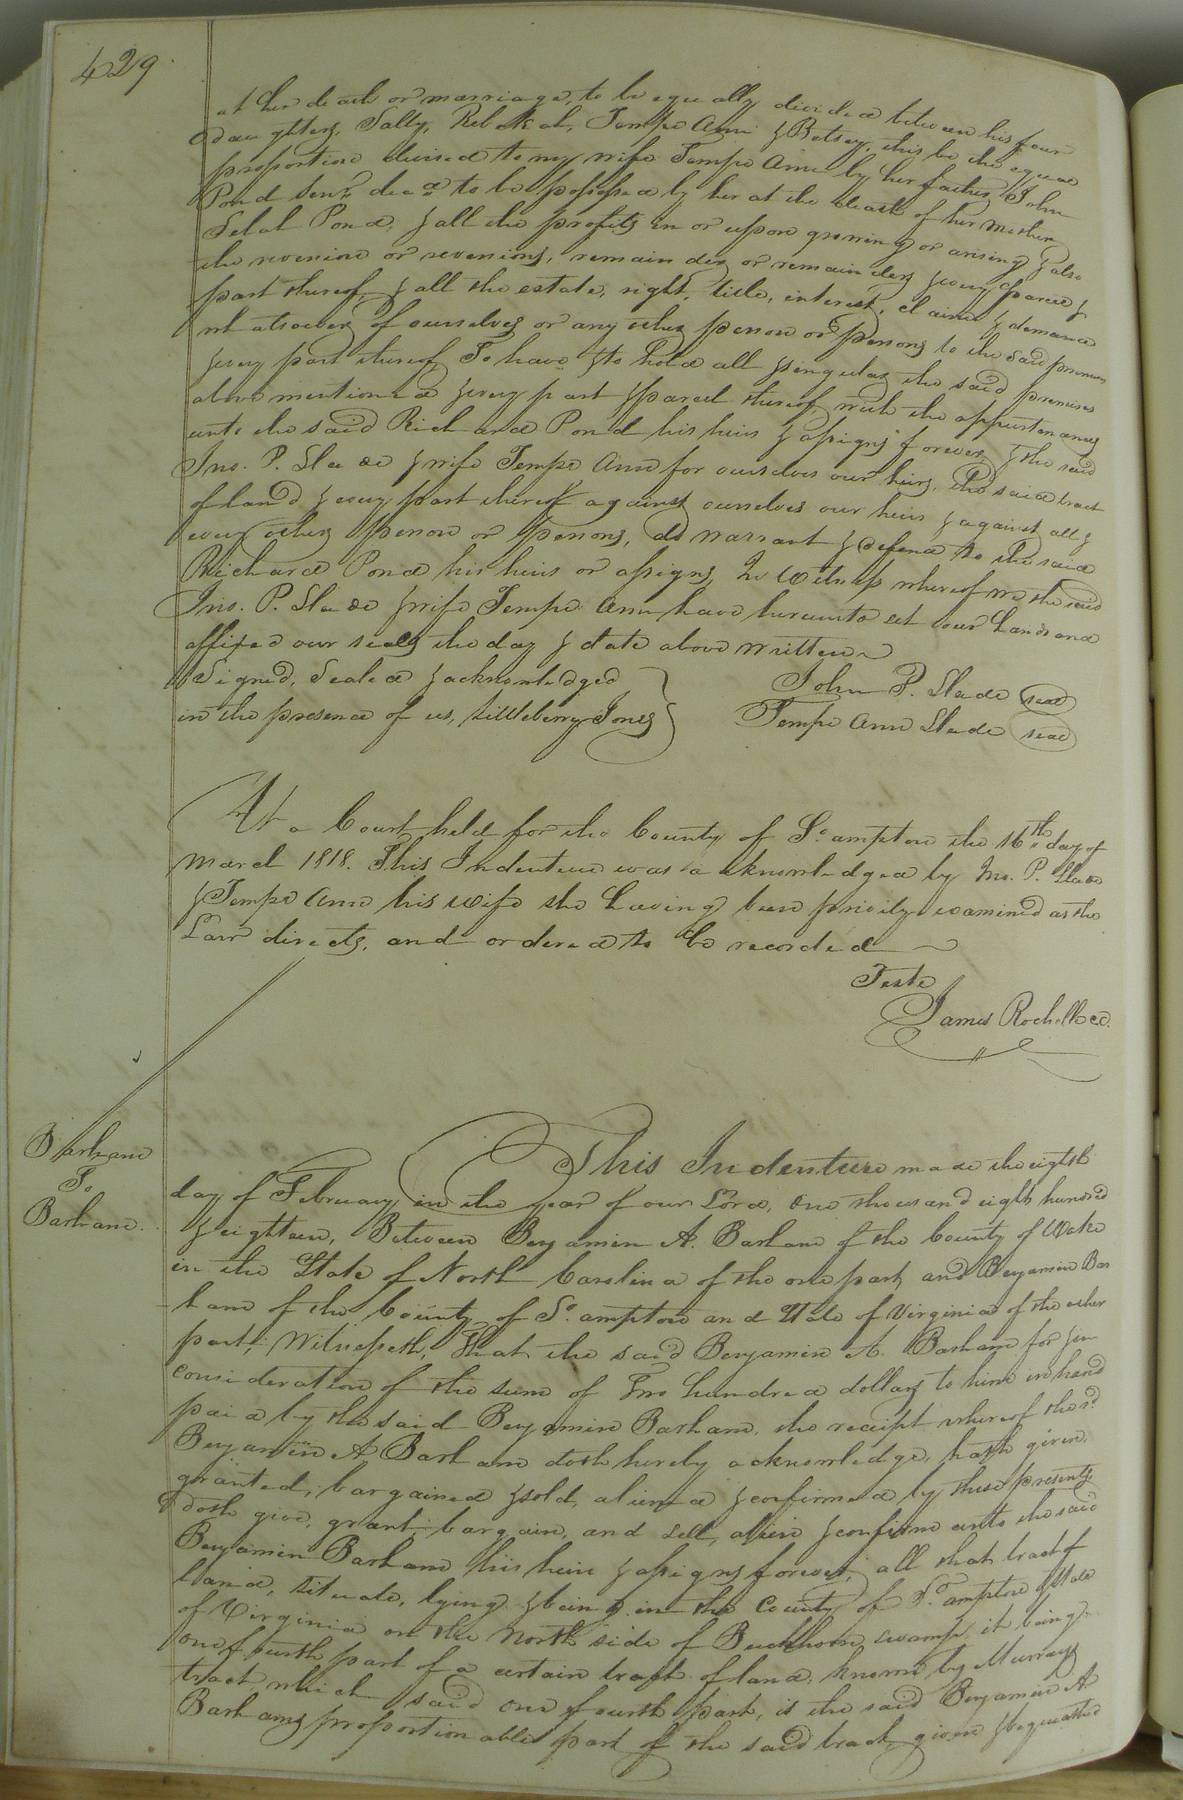 429
at her death or marriage, to be equally divided between his four
daughters, Sally, Rebekah, Tempe Ann & Betsey, this be the equal
proportion devised to my wife Tempe Ann by her father John
Pond Senr. decd. to be possessed by her at the death of her Mother
Selah Pond, & all the profits in or upon growing or arising & also
the revenine or revenions, remainder or remainders & every parcel &
part thereof, & all the estate, right, title, interest, claim & demand
whatsoever of ourselves or any other person or persons to the said premises
& every part thereof To have & to hold all & singular the said premises
above mentioned & every part & parcel thereof, with the appurtenances
unto the said Richard Pond his heirs & assigns forever & the said
Jno. P. Slade & wife Tempe Ann for ourselves our heirs, the said tract
of land & every part thereof against ourselves our heirs & against all &
every other person or persons, do warrant & defend to the said
Richard Pond his heirs or assigns, In Witness whereof we the said
Jno. P. Slade & wife Tempe Ann have hereunto set our hands and
affixed our seals the day & date above written
Signed, Sealed & acknowledged
in the presence of us, Littleberry Jones
John P. Slade seal
Tempe Ann Slade seal
At a Court held for the County of So. ampton the 16th. day of
March 1818. This Indenture was acknowledged by Jno. P. Slade
& Tempe Ann his wife she having been privily examined as the
Law directs, and ordered to be recorded
Teste
James Rochelle cc.
Barham
To
Barham.
This Indenture made the eighth
day of February in the year of our Lord, one thousand eight hundred
& eighteen, Between Benjamin A. Barham of the County of Wake
in the State of North Carolina of the one part, and Benjamin Bar
ham of the County of So. ampton and State of Virginia of the other
part; Witnesseth, That the said Benjamin A. Barham for & in
consideration of the sum of Two hundred dollars to him in hand
paid by the said Benjamin Barham, the receipt whereof the sd.
Benjamin A Barham doth hereby acknowledge, hath given,
granted, bargained & sold, aliened & confirmed by these presents
doth give, grant, bargain, and sell, alien & confirm unto the said
Benjamin Barham his heirs & assigns forever, all that tract of
land, situate, lying & being in the County of So. ampton & State
of Virginia on the North side of Buckhorn swamp, it being
one fourth part of a certain tract of land, known by Murrays
tract which said one fourth part, is the said Benjamin A
Barhams proportionable part of the said tract, given & bequeathed